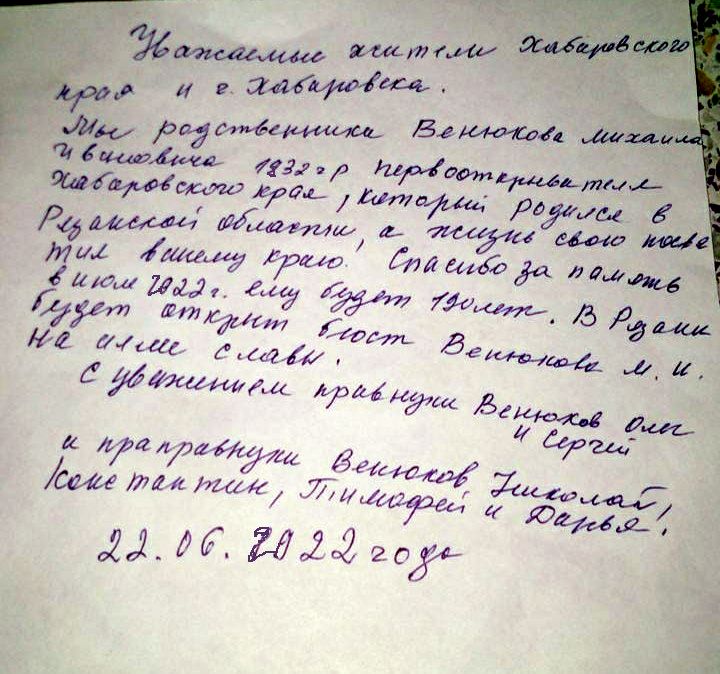 Уважаемые жители Хабаровского
края и г. Хабаровска.
Мы родственники Венюкова Михаила
Ивановича 1832 г р первооткрывателя
Хабаровского края, который родился в
Рязанской области, а жизнь свою посвя
тил вашему краю. Спасибо за память
в июле 2022 г. ему будет 190 лет. В Рязани
будет открыт бюст Венюкова М. И.
на аллее славы.
С уважением правнуки Венюков Олег
и Сергей
и праправнуки Венюков Николай,
Константин, Тимофей и Дарья.
22.06.2022 года